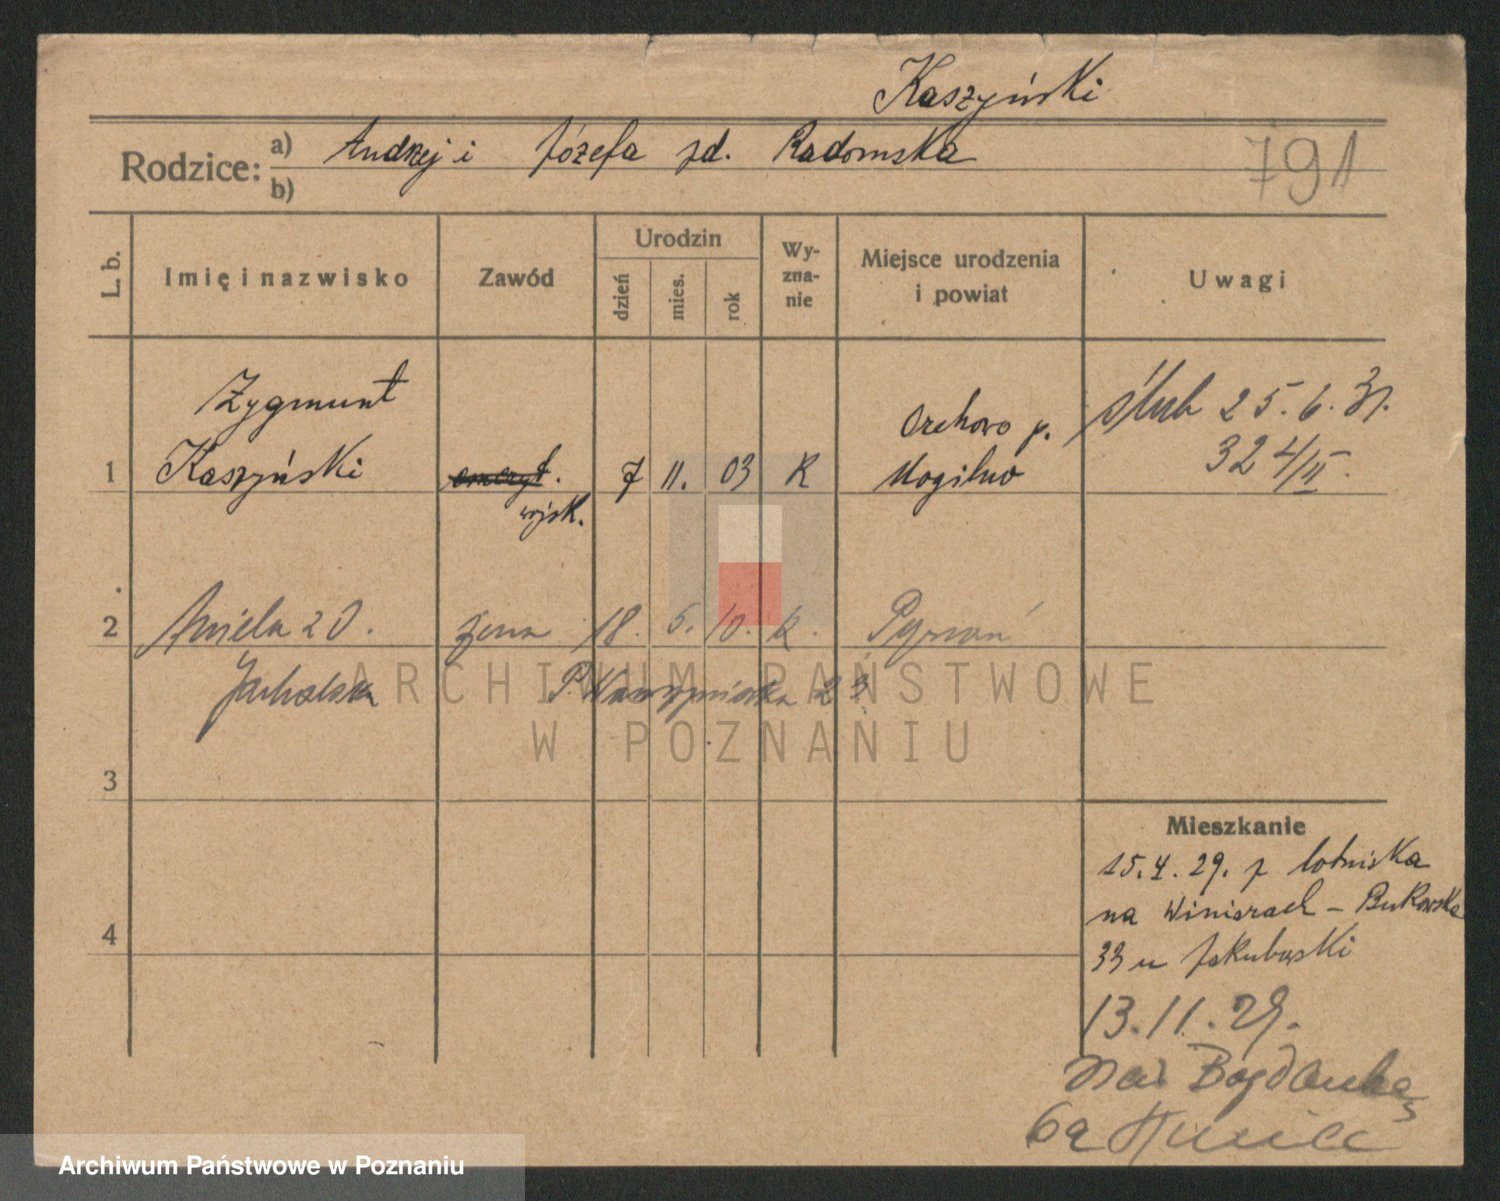 Kaszyński
Rodzice: a) Andrzej i Józefa zd. Radomska
b)
791
L. b.
Imię i nazwisko
Zawód
Urodzin
dzień
mies.
rok
Wy-
zna-
nie
Miejsce urodzenia
i powiat
Uwagi
Zygmunt
Kaszyński
1
emeryt.
wojsk.
7 11. 03 K
Orchowo p.
Mogilno
ślub 25.6.31.
324/II.
2 Aniela zd. żona 18. 5. 10. k. Poznań
23
ARCHIWUM PAŃSTWOWE
W POZNANIU
3
4
Mieszkanie
15.4.29. z lotniska
na Winiarach – Bukowska
33 u Jakubowski
13.11.29.
na Bogdankę
6a
Archiwum Państwowe w Poznaniu